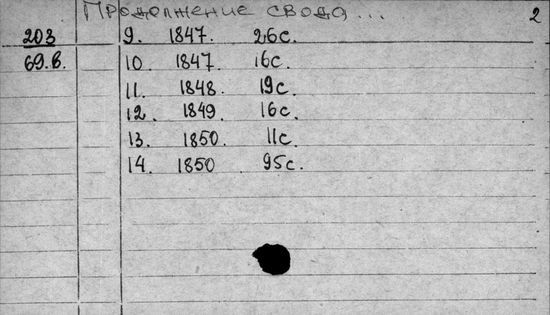 Продолжение свода... 2
203 9. 1847. 26с.
69.в. 10. 1847. 16с.
11. 1848. 19с.
12. 1849. 16с.
13. 1850. 11с.
14. 1850 95с.